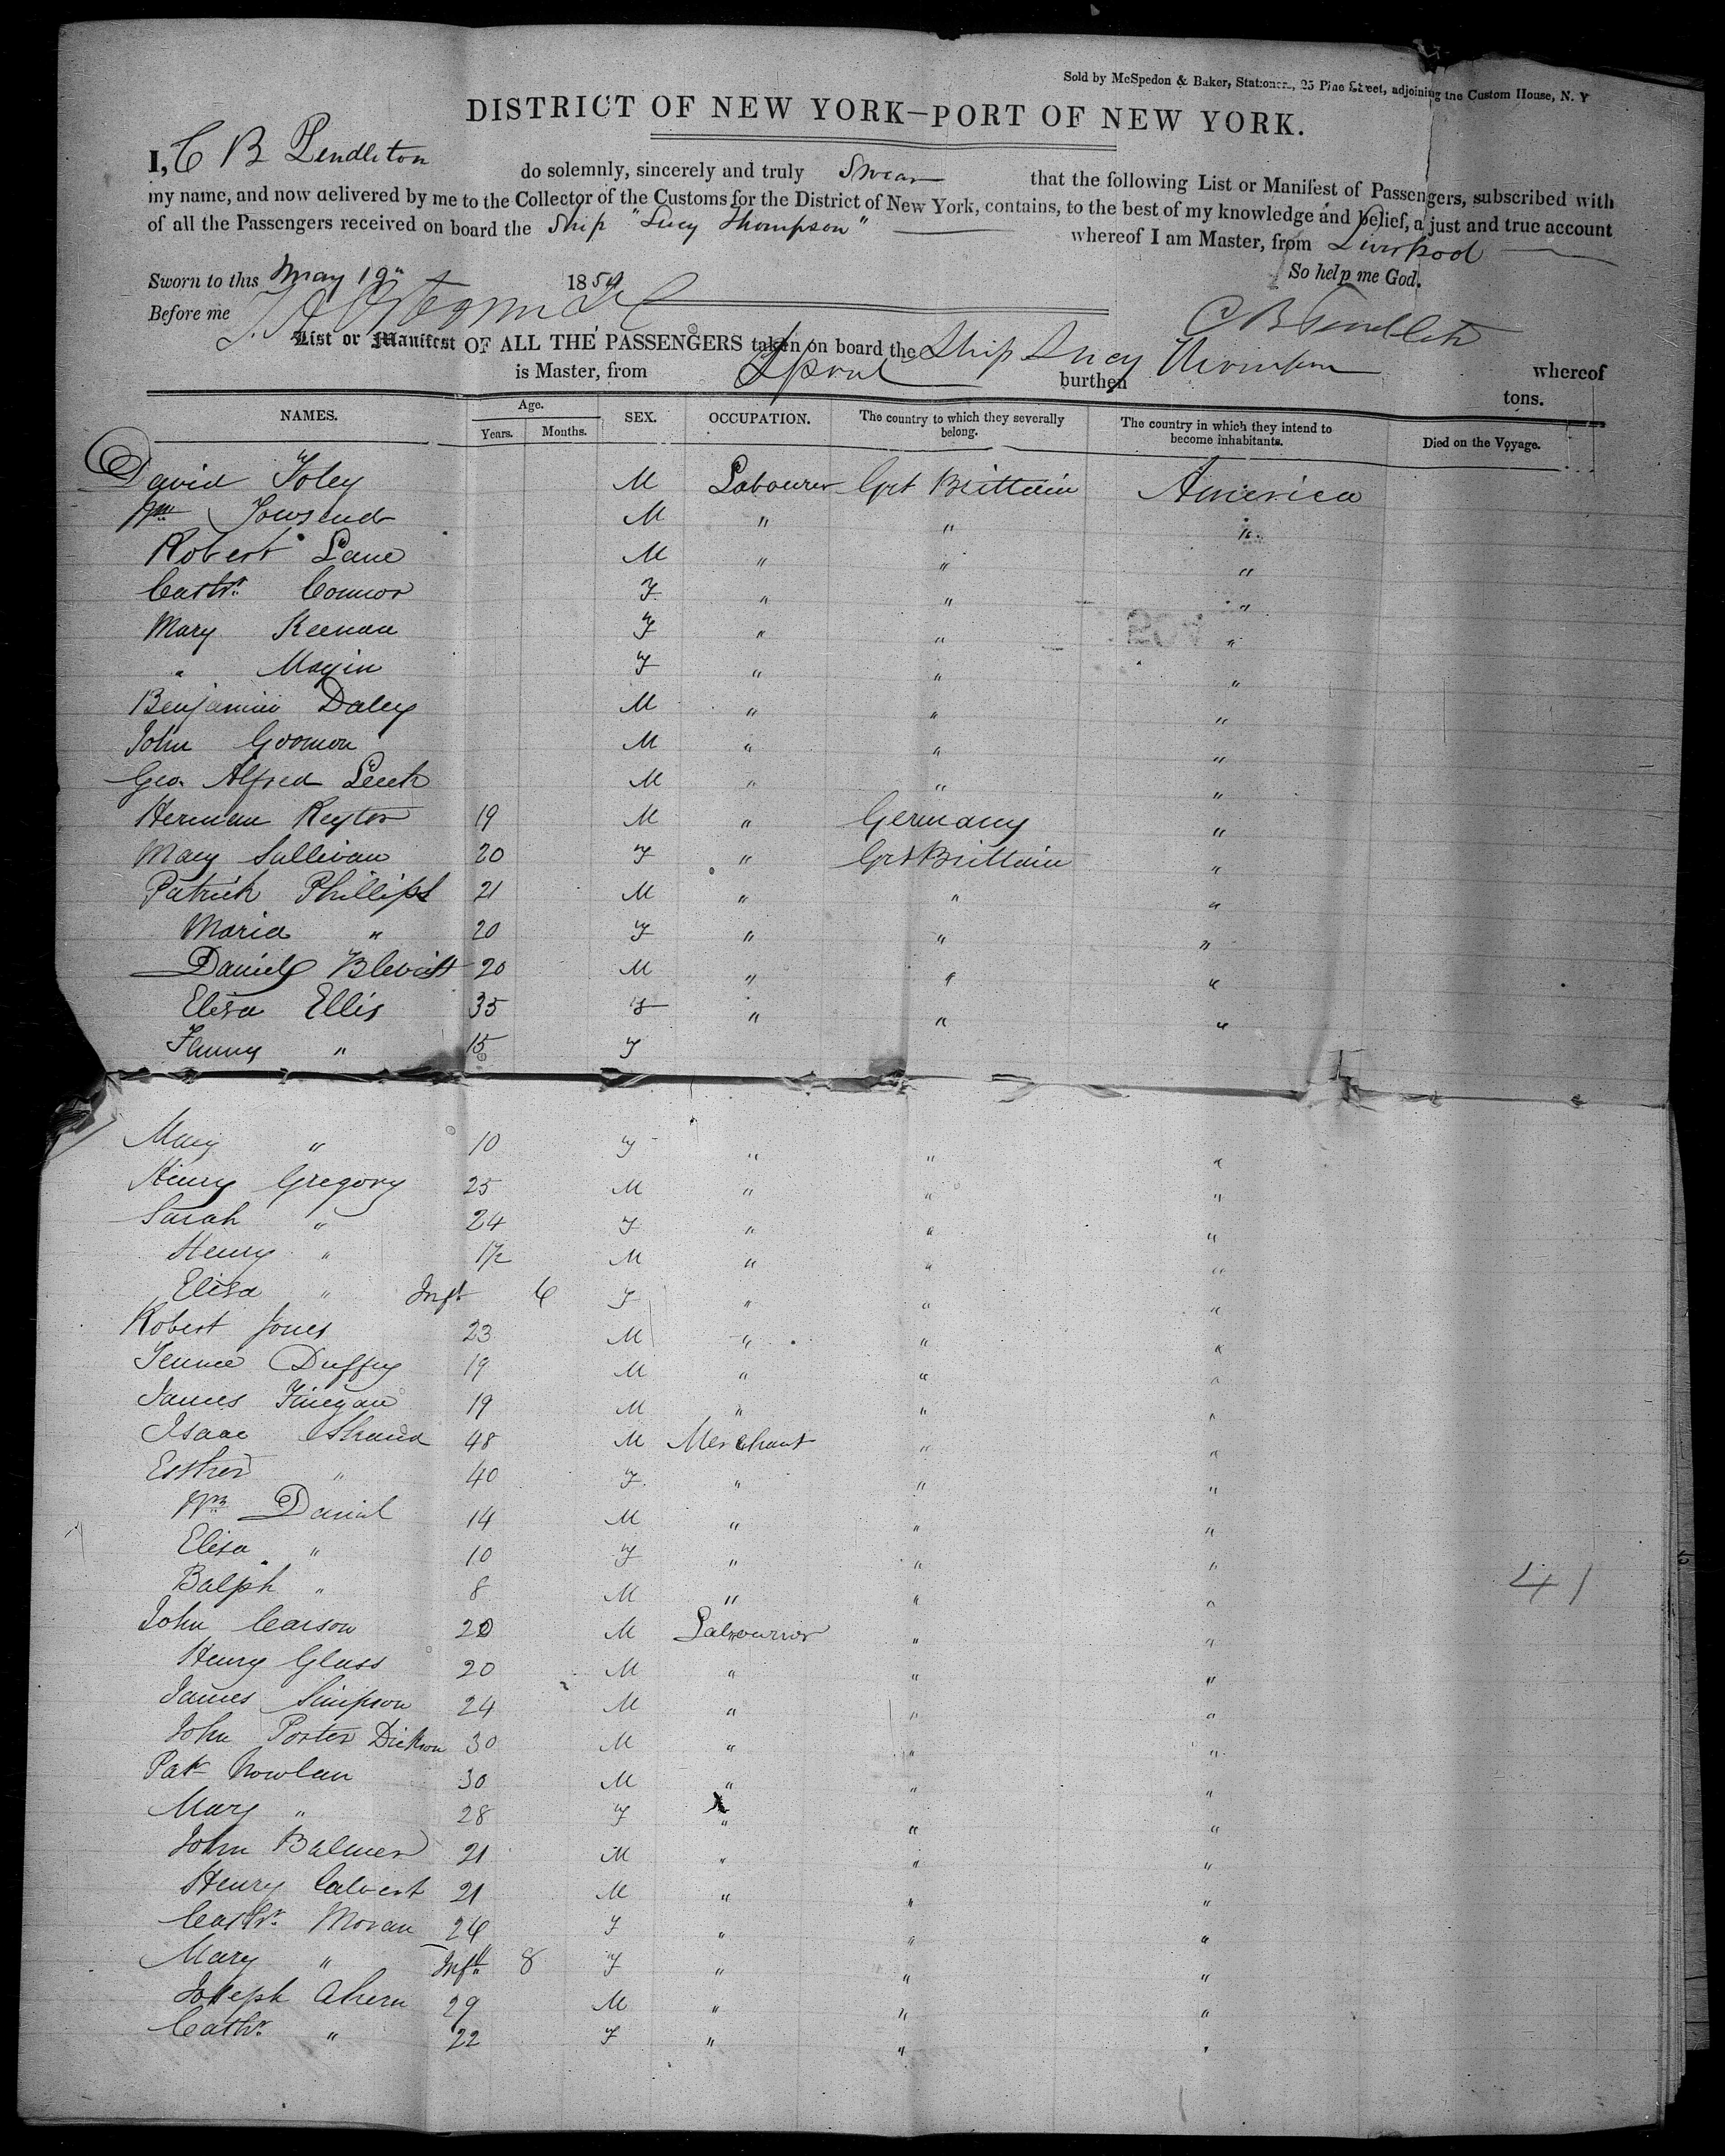 Sold by McSpedon & Baker, Stationers, 25 Pine Street, adjoining the Custom House, N. Y
DISTRICT OF NEW YORK—PORT OF NEW YORK.
I, C B Pendleton do solemnly, sincerely and truly Swear that the following List or Manifest of Passengers, subscribed with
my name, and now delivered by me to the Collector of the Customs for the District of New York, contains, to the best of my knowledge and belief, a just and true account
of all the Passengers received on board the Ship "Lucy Thompson" whereof I am Master, from Liverpool
So help me God.
Sworn to this May 19th 185
Before me
C B Pendleton
List or Manifest OF ALL THE PASSENGERS taken on board the Ship Lucy Thompson whereof
is Master, from Lpool burthen tons.
NAMES. Age. Years. Months. SEX. OCCUPATION. The country to which they severally belong. The country in which they intend to become inhabitants. Died on the Voyage.
David Foley M Labourer Grt Brittain America
Wm Townsend M " " "
Robert Lane M " " "
Cathr. Connor F " " "
Mary Keenan F " " "
" Magin F " " "
Benjamin Daley M " " "
John Gormon M " " "
Geo. Alfred Leech M " " "
Herman Reyter 19 M " Germany "
Mary Sullivan 20 F " Grt Brittain "
Patrick Phillips 21 M " " "
Maria " 20 F " " "
Daniel 20 M " " "
Eliza Ellis 35 F " " "
Fanny " 15 F
Mary " 10 F " " "
Henry Gregory 25 M " " "
Sarah " 24 F " " "
Henry " 1½ M " " "
Eliza " Inft 6 F " " "
Robert Jones 23 M " " "
Duffy 19 M " " "
James Finegan 19 M " " "
Isaac Shand 48 M Merchant " "
Esther " 40 F " " "
Wm Daniel 14 M " " "
Eliza " 10 F " " "
Ralph " 8 M " " "
John Carson 20 M Labourer " "
Henry Glass 20 M " " "
James Simpson 24 M " " "
John Porter Dickson 30 M " " "
Patk Nowlan 30 M " " "
Mary " 28 F " " "
John Balmer 21 M " " "
Henry Calvert 21 M " " "
Cathr. Moran 26 F " " "
Mary " Inft 8 F " " "
Joseph Ahern 29 M " " "
Cathr. " 22 F " " "
41